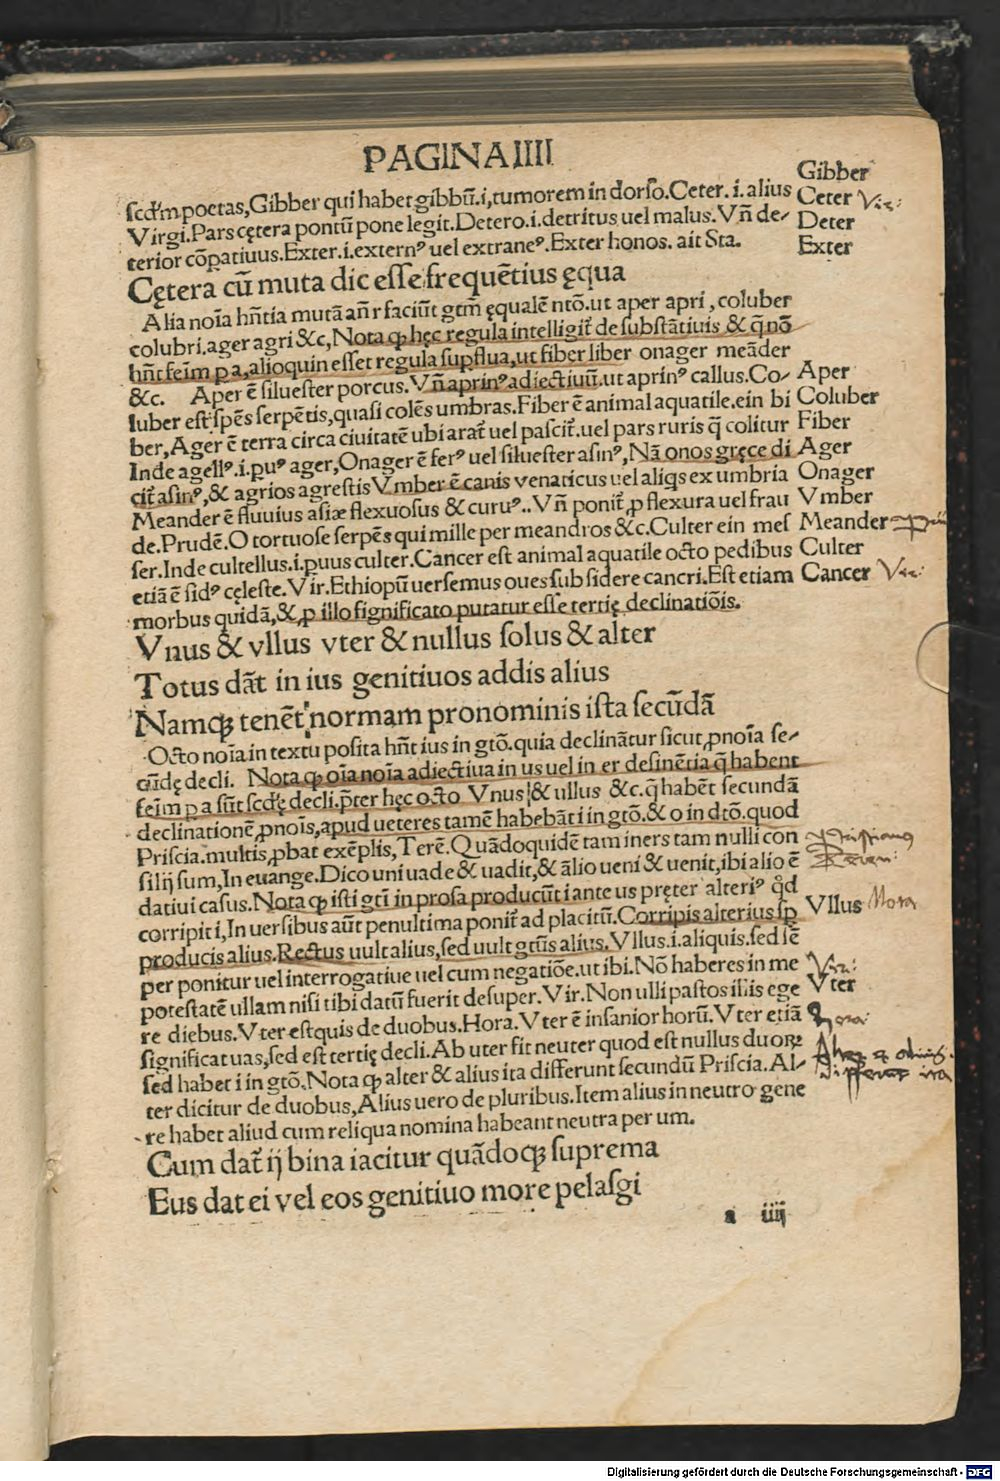 PAGINA IIII
scd'm poetas, Gibber qui habet gibbū.i, tumorem in dorso. Ceter. i. alius
Virgi. Pars cętera pontū pone legit. Detero .i. detritus uel malus. Vñ de-
terior cōpatiuus. Exter .i. externꝰ uel extraneꝰ. Exter honos. ait Sta.
Gibber
Ceter Vir:
Deter
Exter
Cętera cū muta dic esse frequētius ęqua
Alia noīa hñtia mutā añ r faciūt gtm̄ ęqualē ntō. ut aper apri, coluber
colubri. ager agri &c, Nota qꝫ hęc regula intelligit̄ de substātiuis & q̄ nō
hñt feīm p a, alioquin esset regula supflua, ut fiber liber onager meāder
&c. Aper ē siluester porcus. Vñ aprinꝰ adiectiuū. ut aprinꝰ callus. Co-
luber est spēs serpētis, quasi colēs umbras. Fiber ē animal aquatile. ein bi
ber, Ager ē terra circa ciuitatē ubi arat̄ uel pascit̄. uel pars ruris q̄ colitur
Inde agellꝰ .i. puꝰ ager, Onager ē ferꝰ uel siluester asinꝰ, Nā onos gręce di
cit̄ asinꝰ, & agrios agrestis Vmber ē canis venaticus uel aliqs ex umbria
Meander ē fluuius asiæ flexuosus & curuꝰ.. Vñ ponit̄ ꝓ flexura uel frau
de. Prudē. O tortuose serpēs qui mille per meandros &c. Culter ein mes
ser. Inde cultellus .i. puus culter. Cancer est animal aquatile octo pedibus
etiā ē sidꝰ cęleste. Vir. Ethiopū uersemus oues sub sidere cancri. Est etiam
morbus quidā, & ꝓ illo significato putatur esse tertię declinatiōis.
Aper
Coluber
Fiber
Ager
Onager
Vmber
Meander
Culter
Cancer Vir:
Vnus & vllus vter & nullus solus & alter
Totus dāt in ius genitiuos addis alius
Namqꝫ tenēt normam pronominis ista secūdā
Octo noīa in textu posita hñt ius in gtō. quia declināтur sicut ꝓnoīa se-
cūdę decli. Nota qꝫ oīa noīa adiectiua in us uel in er desinētia q̄ habent
feīm p a sūt scdę decli. p̄ter hęc octo Vnus & ullus &c. q̄ habēt secundā
declinationē ꝓnoīs, apud ueteres tamē habebāt i in gtō. & o in dtō. quod
Priscia. multis ꝓbat exēplis, Terē. Quādoquidē tam iners tam nulli con
silij sum, In euange. Dico uni uade & uadit, & ālio ueni & uenit, ibi alio ē
datiui casus. Nota qꝫ isti gtī in prosa producūt i ante us pręter alteriꝰ qd
corripit i, In uersibus aūt penultima ponit̄ ad placitū. Corripis alterius sp
producis alius. Rectus uult alius, sed uult gtūs alius. Vllus .i. aliquis. sed sē
per ponitur uel interrogatiue uel cum negatiōe. ut ibi. Nō haberes in me
potestatē ullam nisi tibi datū fuerit desuper. Vir. Non ulli pastos illis ege
re diebus. Vter est quis de duobus. Hora. Vter ē insanior horū. Vter etiā
significat uas, sed est tertię decli. Ab uter fit neuter quod est nullus duoꝝ
sed habet i in gtō. Nota qꝫ alter & alius ita differunt secundū Priscia. Al-
ter dicitur de duobus, Alius uero de pluribus. Item alius in neutro gene
re habet aliud cum reliqua nomina habeant neutra per um.
Vllus Nota
Vir:
Vter
Hora:
Cum dat̄ ij bina iacitur quādoqꝫ suprema
Eus dat ei vel eos genitiuo more pelasgi
a iiij
Digitalisierung gefördert durch die Deutsche Forschungsgemeinschaft - DFG